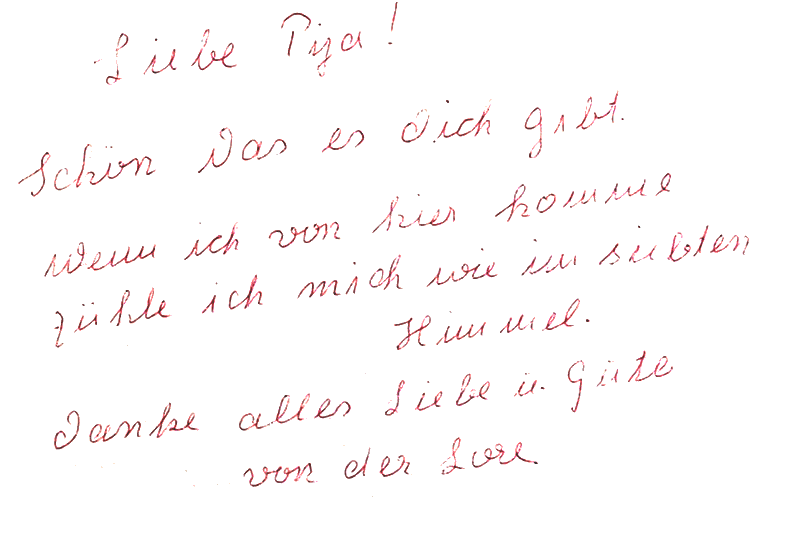 Liebe Piza!
Schön das es dich gibt.
Wenn ich von hier komme
fühle ich mich wie im siebten
Himmel.
Danke alles Liebe u. Gute
von der Lore